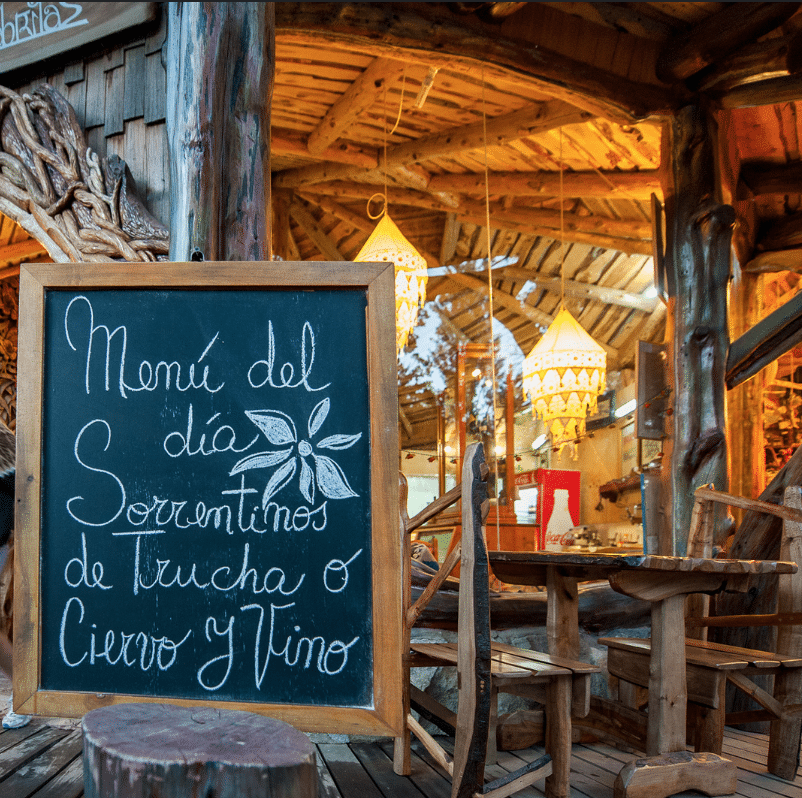 Menú del
día
Sorrentinos
de Trucha o
Ciervo y Vino
Coca-Cola